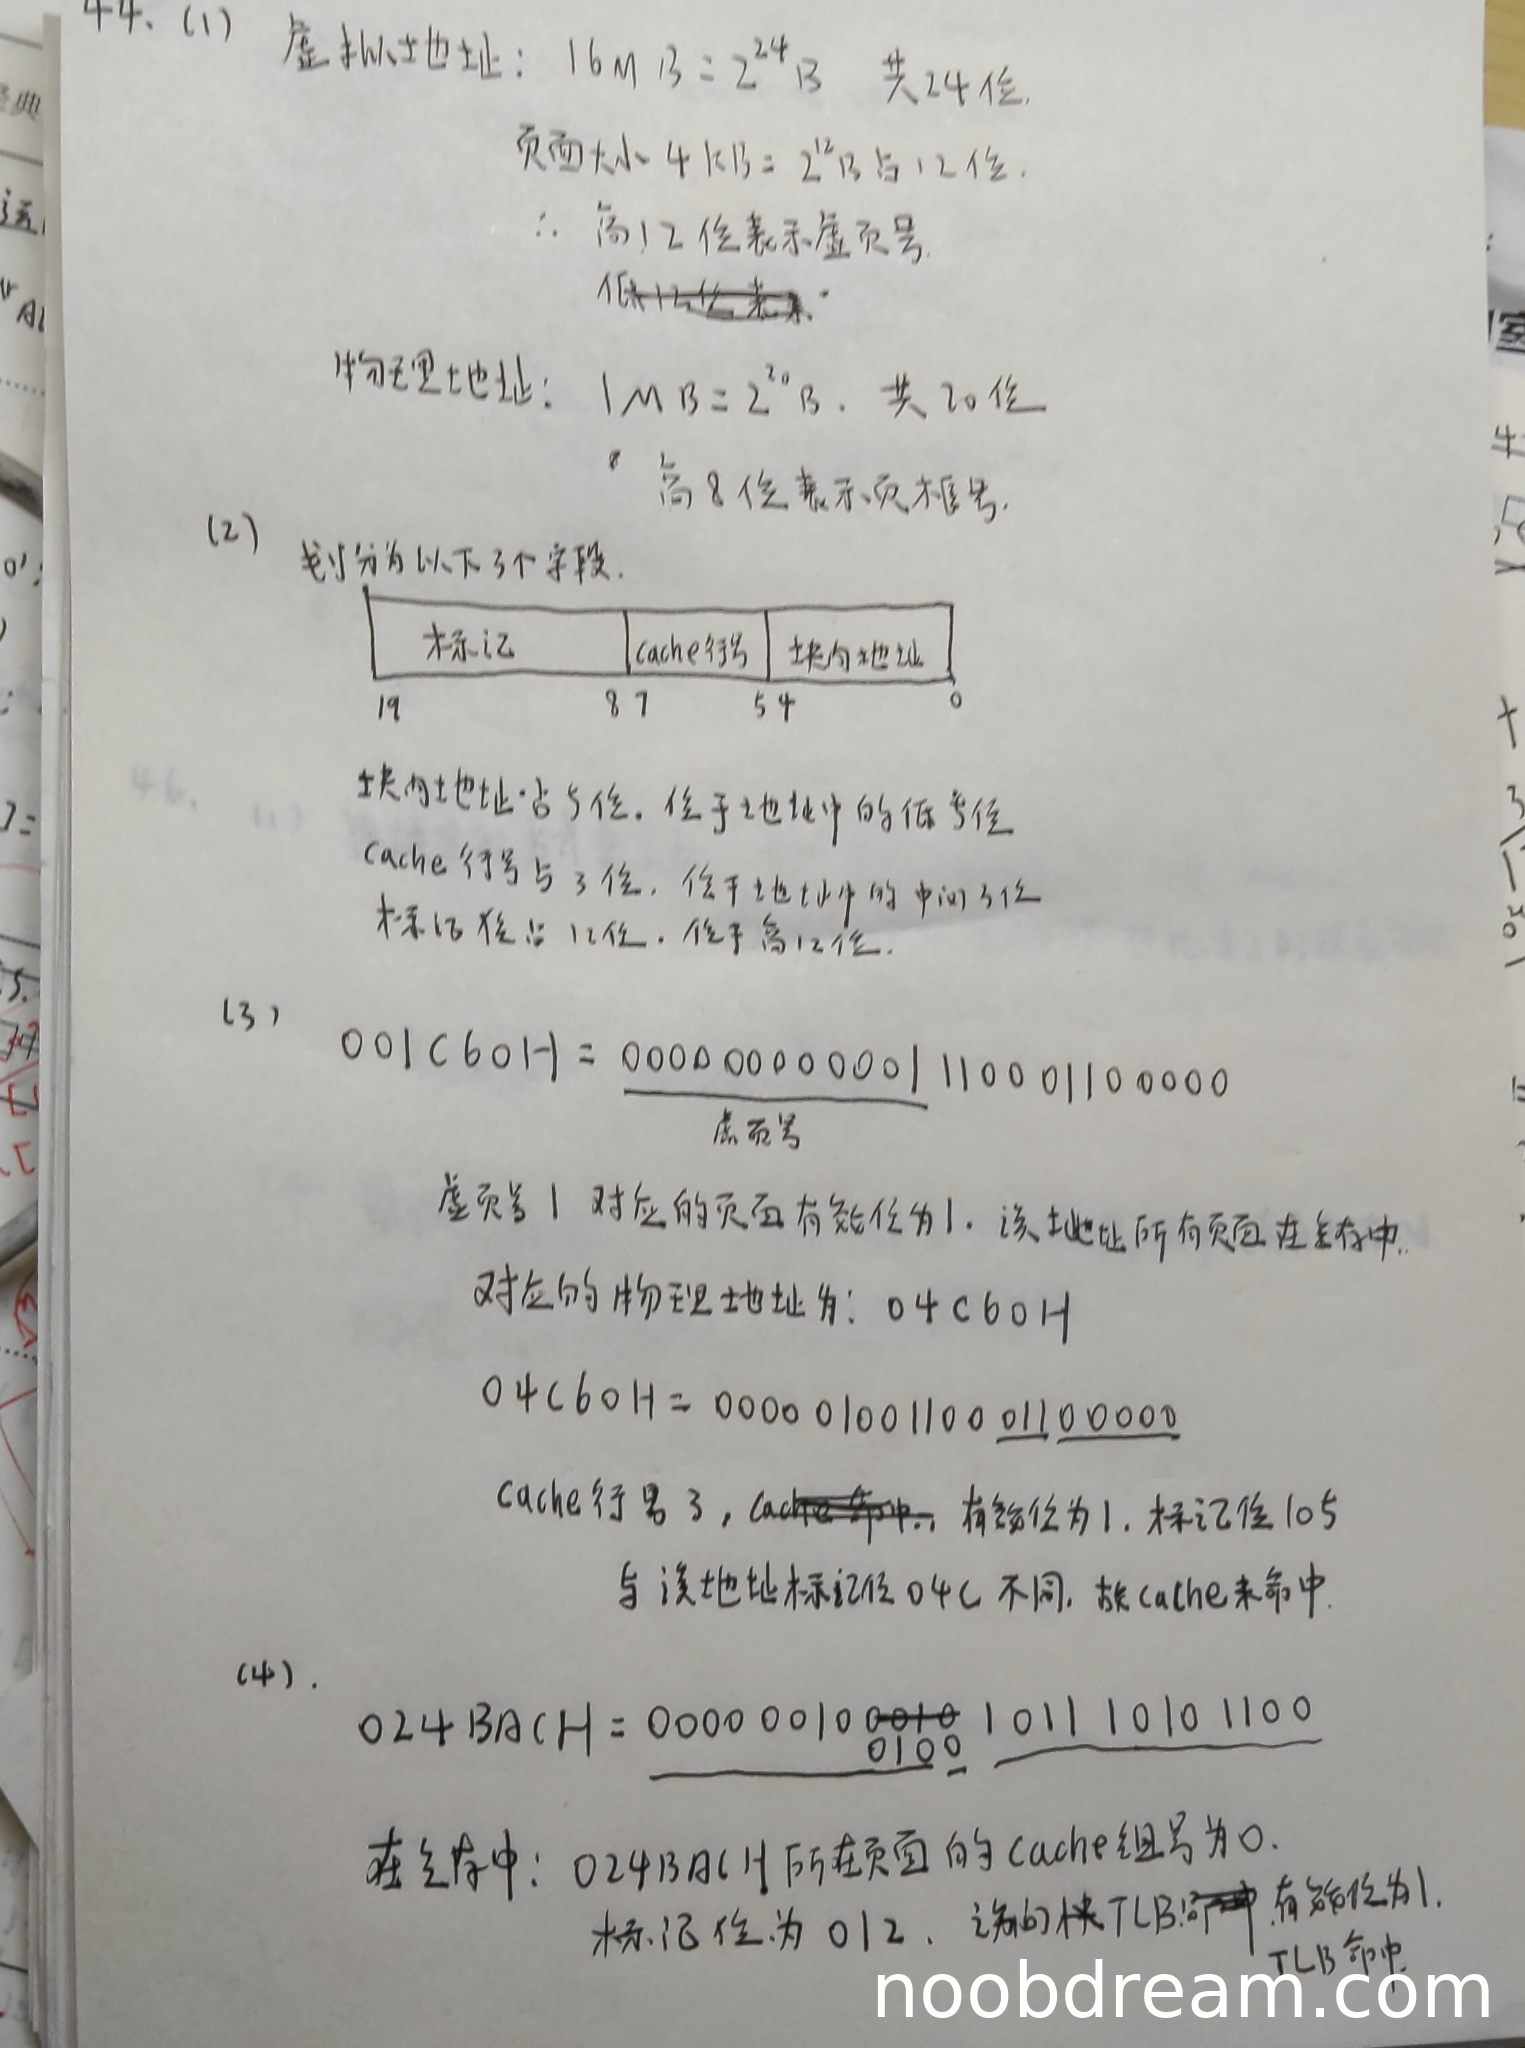 44. (1) 虚拟地址: 16MB=2^24B 共24位.
页面大小4KB=2^12B占12位.
∴ 高12位表示虚页号.
物理地址: 1MB=2^20B. 共20位
高8位表示页框号.
(2) 划分为以下3个字段.
标记 cache行号 块内地址
19 8 7 5 4 0
块内地址占5位. 位于地址中的低5位
cache行号占3位. 位于地址中的中间3位
标记位占12位. 位于高12位.
(3) 001C60H = 000000000001 110001100000
虚页号
虚页号1 对应的页面有效位为1. 该地址所有页面在主存中.
对应的物理地址为: 04C60H
04C60H = 000001001100 011 00000
cache行号3, 有效位为1. 标记位105
与该地址标记位04C不同. 故cache未命中.
(4). 024BACH = 00000010 0100 1011 1010 1100
在主存中: 024BACH所在页面的cache组号为0.
标记位为012. 该 TLB 有效位为1.
TLB命中.
noobdream.com